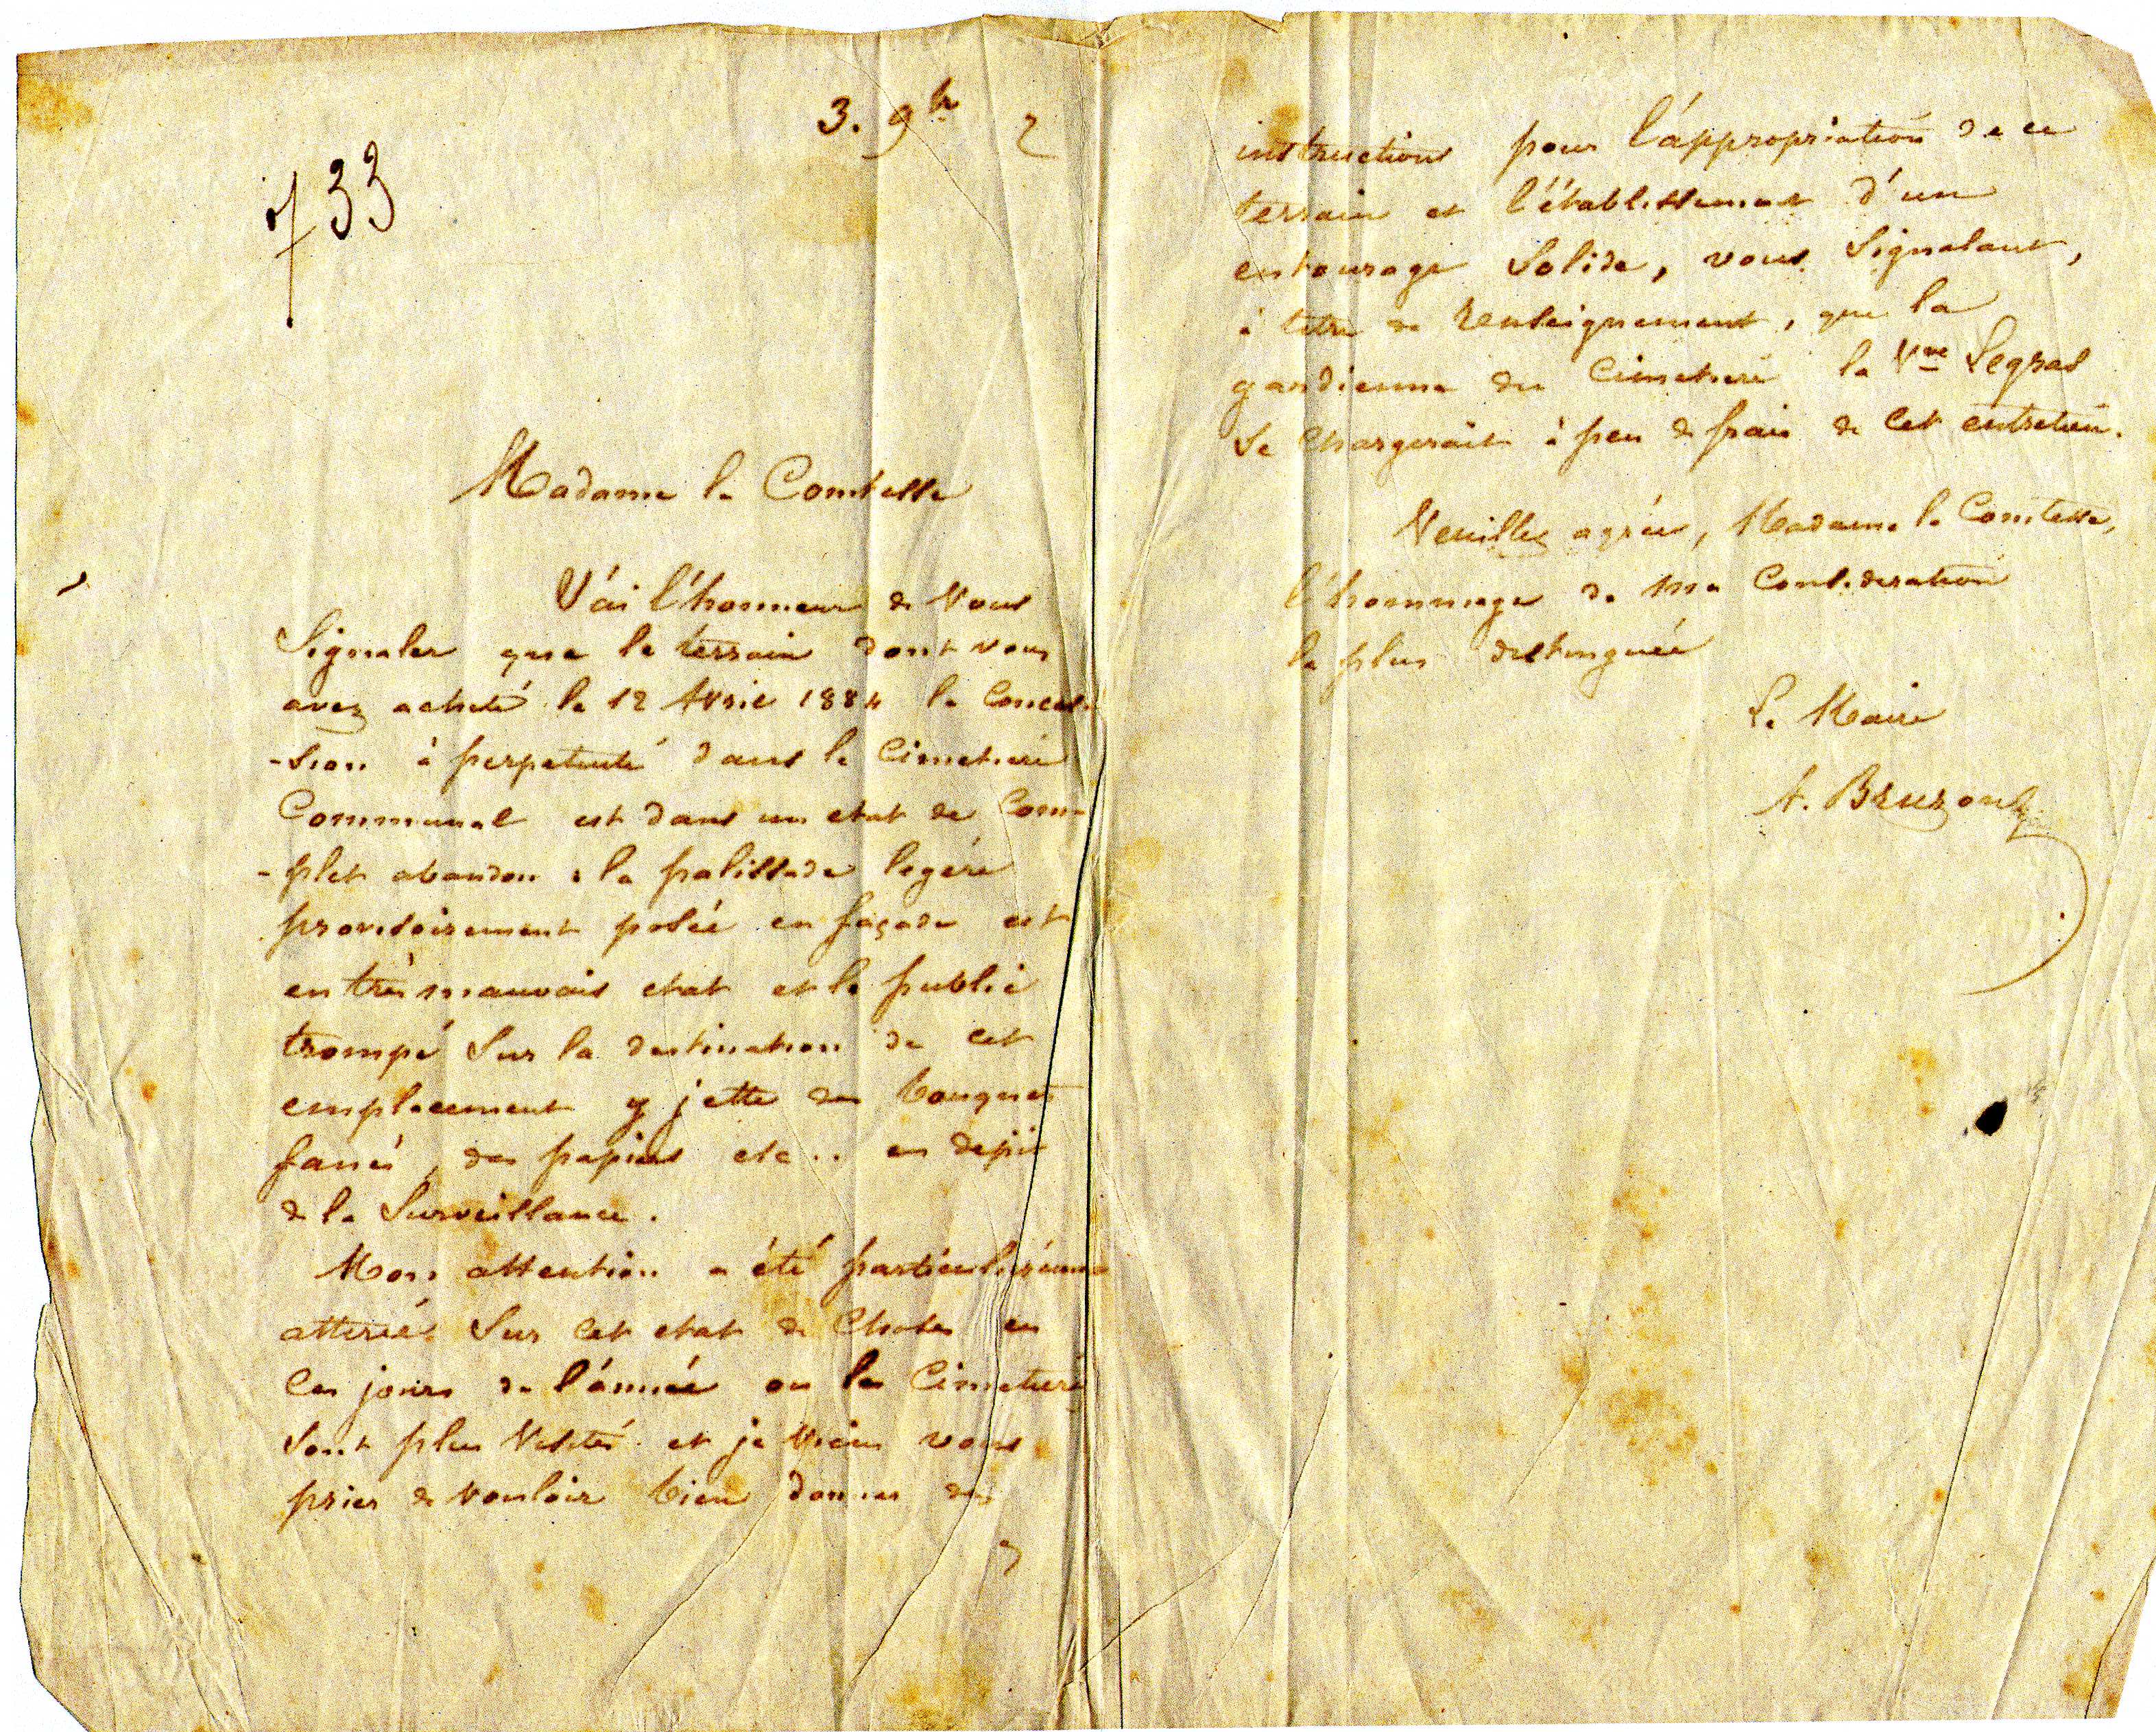 3. 9bre
733
Madame la Comtesse
J'ai l'honneur de Vous
Signaler que le terrain dont vous
avez acheté le 12 Avril 1884 la Conces-
-sion à perpetuité dans le Cimetière
Communal est dans un etat de Com-
-plet abandon : la palissade legère
provisoirement posée en façade est
en très mauvais etat et le public
trompé Sur la destination de cet
emplacement y jette des bouquets
fanés, des papiers etc.. en depit
de la Surveillance.
Mon attention a été particulièrement
attirée Sur cet etat de Choses en
Ces jours de l'année ou les Cimetières
sont plus Visités et je viens vous
prier de vouloir bien donner des
instructions pour l'appropriation de ce
terrain et l'établissement d'un
entourage Solide, vous Signalant,
à titre de renseignement, que la
gardienne du Cimetière la Vve Legras
Se Chargerait à peu de frais de Cet entretien.
Veuillez agréer, Madame la Comtesse,
l'hommage de ma Consideration
la plus distinguée
Le Maire
A. Bruzon